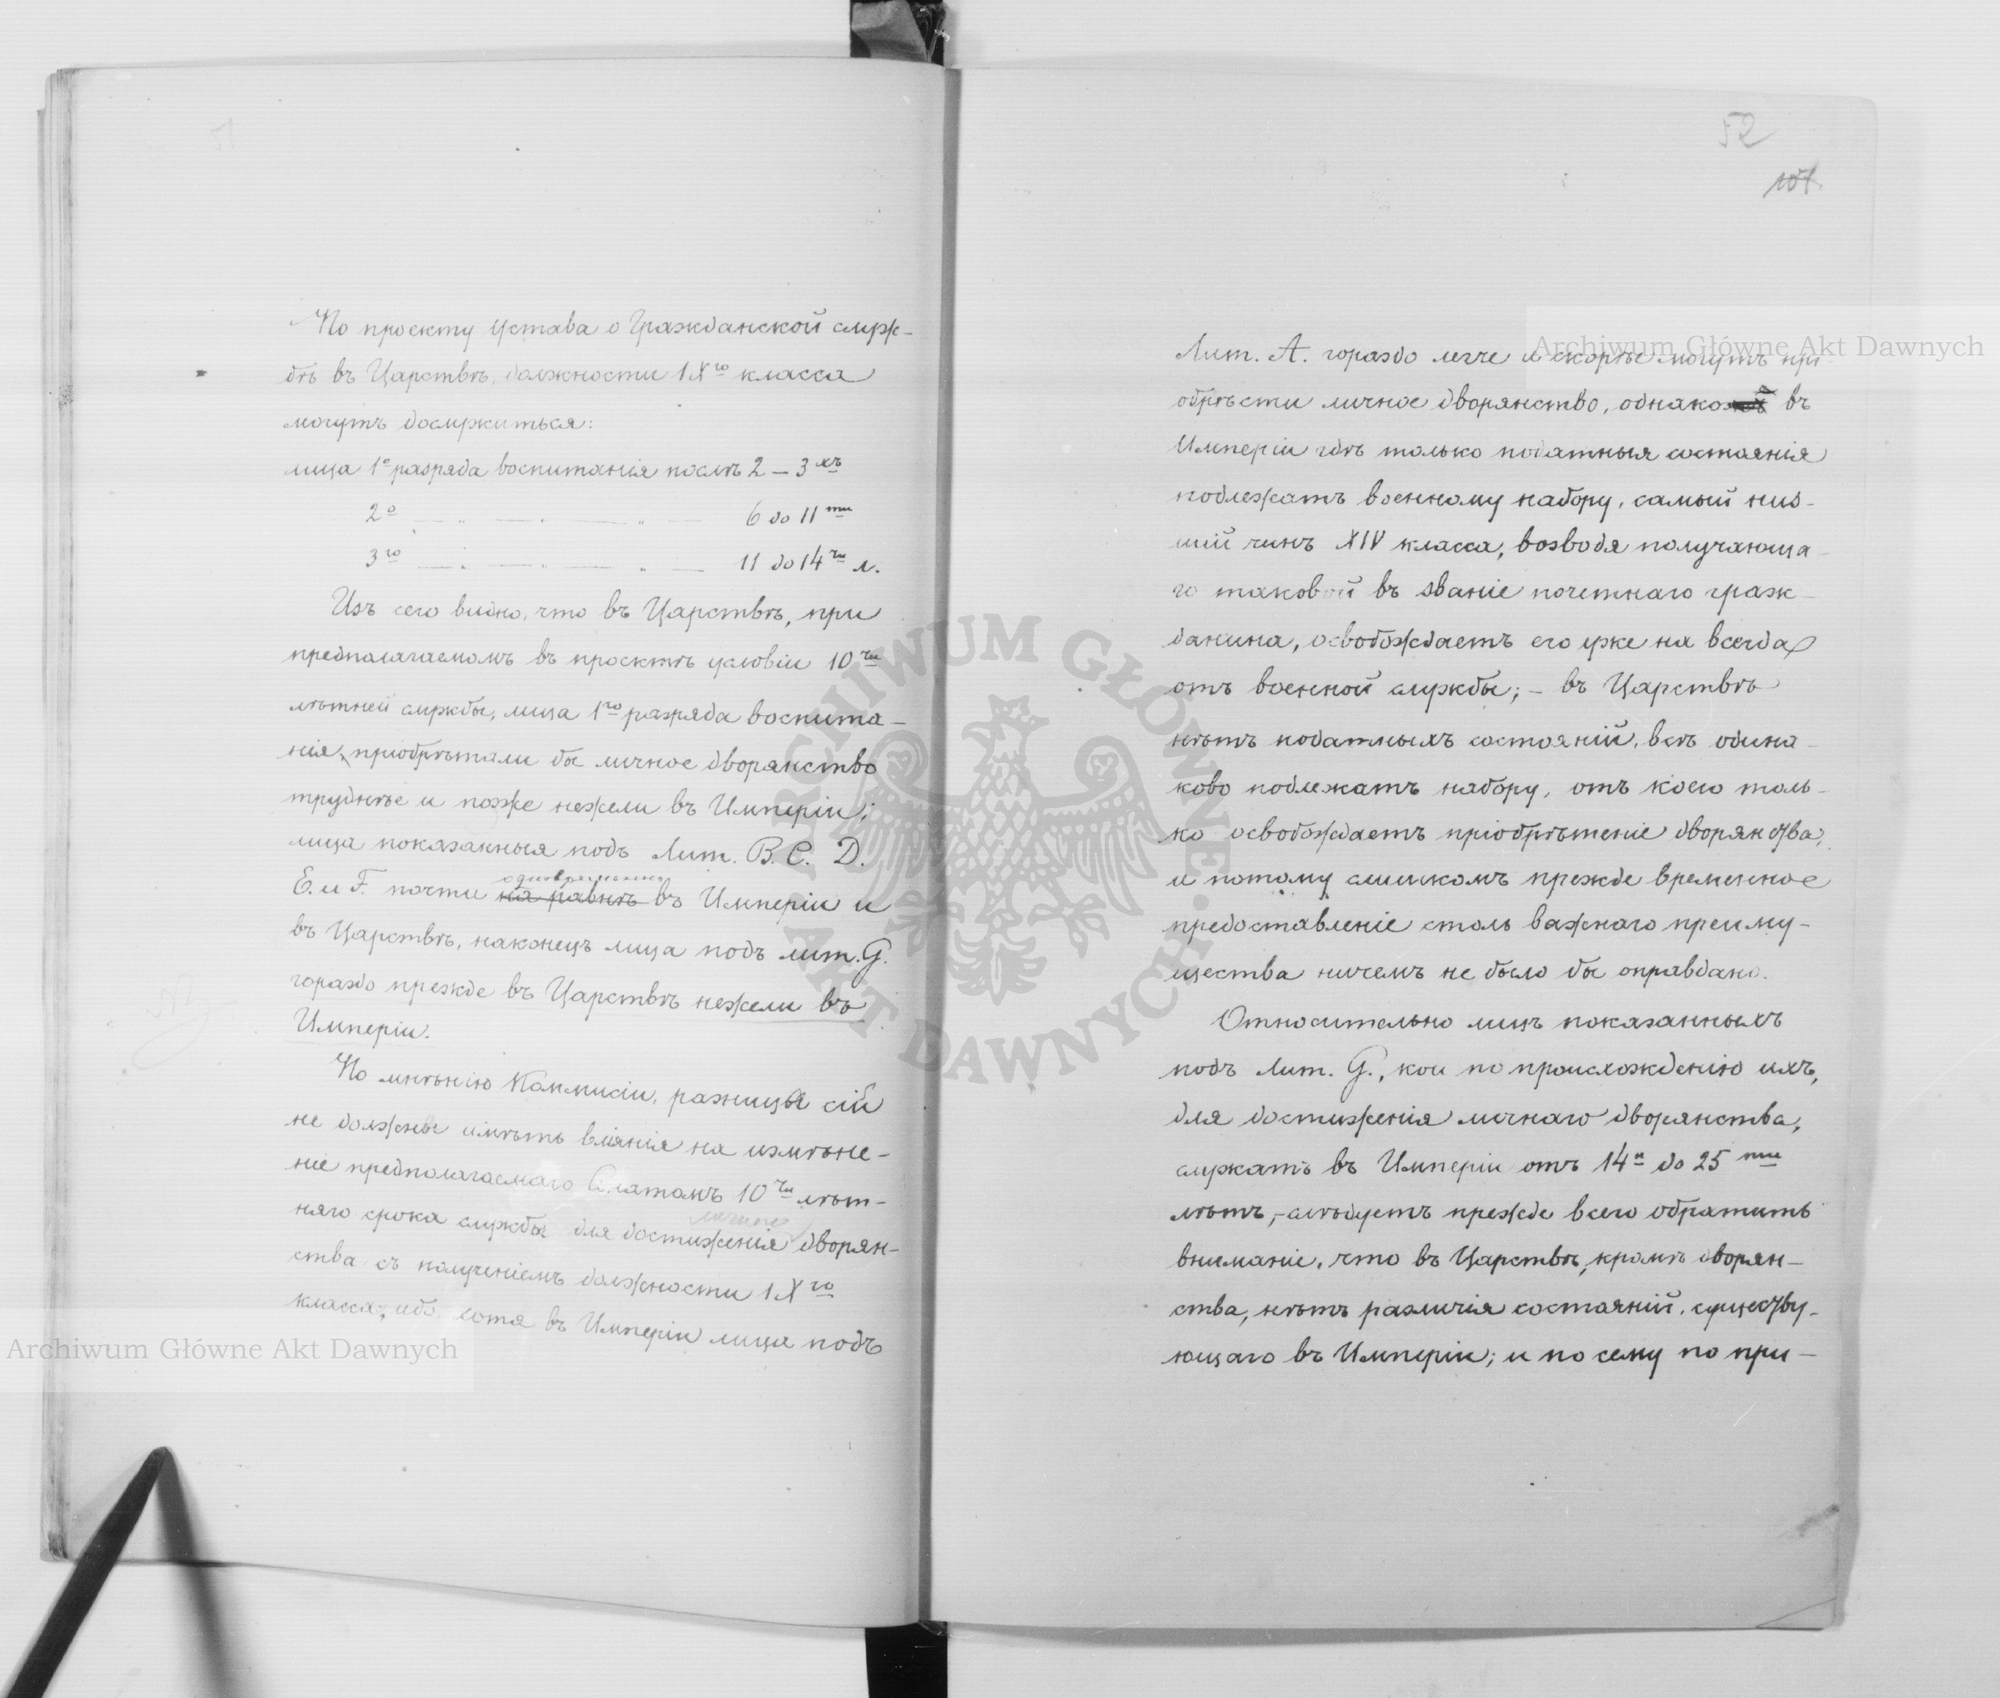 По проекту Устава о Гражданской служ-
бѣ въ Царствѣ, должности IXго класса
могутъ дослужиться:
лица 1º разряда воспитанія послѣ 2 — 3хъ
2º — „ — „ — „ — 6 до 11ти
3го — „ — „ — „ — 11 до 14ти л.
Изъ сего видно, что въ Царствѣ, при
предполагаемомъ въ проектѣ условіи 10ти
лѣтней службы, лица 1го разряда воспита-
нія, пріобрѣтали бы личное дворянство
труднѣе и позже нежели въ Имперіи;
лица показанныя подъ Лит. B. C. D.
одновременно
E. и F. почти на равнѣ въ Имперіи и
въ Царствѣ, наконецъ лица подъ лит. G.
гораздо прежде въ Царствѣ нежели въ
Имперіи.
По мнѣнію Коммисіи, разницы сіи
не должны имѣть вліянія на измѣне-
ніе предполагаемаго Сенатомъ 10ти лѣт-
няго срока службы для достиженія дворян-
личнаго
ства съ полученіемъ должности IXго
класса; ибо, хотя въ Имперіи лица подъ
52
107.
Лит. А. гораздо легче и скорѣе могутъ прі
обрѣсти личное дворянство, однако въ
Имперіи гдѣ только податныя состоянія
подлежатъ военному набору, самый низ-
шій чинъ XIV класса, возводя получающа-
го таковой въ званіе почетнаго граж-
данина, освобождаетъ его уже на всегда
отъ военной службы; – въ Царствѣ
нѣтъ податныхъ состояній, всѣ одина-
ково подлежатъ набору, отъ коего толь-
ко освобождаетъ пріобрѣтеніе дворянства,
и потому слишкомъ прежде временное
предоставленіе столь важнаго преиму-
щества ничемъ не было бы оправдано.
Относительно лицъ показанныхъ
подъ Лит. G., кои по происхожденію ихъ,
для достиженія личнаго дворянства,
служатъ въ Имперіи отъ 14и до 25ти
лѣтъ, – слѣдуетъ прежде всего обратить
вниманіе, что въ Царствѣ, кромѣ дворян-
ства, нѣтъ различія состояній, существу-
ющаго въ Имперіи; и по сему по при-
Archiwum Główne Akt Dawnych
Archiwum Główne Akt Dawnych
ARCHIWUM GŁÓWNE AKT DAWNYCH